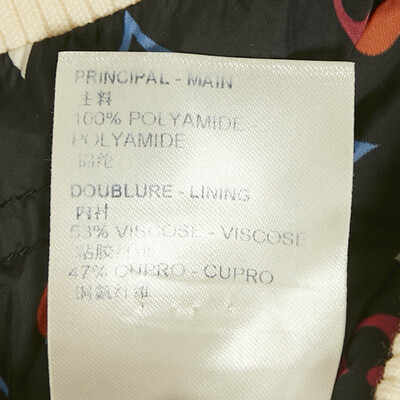 PRINCIPAL - MAIN
主料
100% POLYAMIDE -
POLYAMIDE
锦纶
DOUBLURE - LINING
内衬
53% VISCOSE - VISCOSE
粘胶纤维
47% CUPRO - CUPRO
铜氨纤维